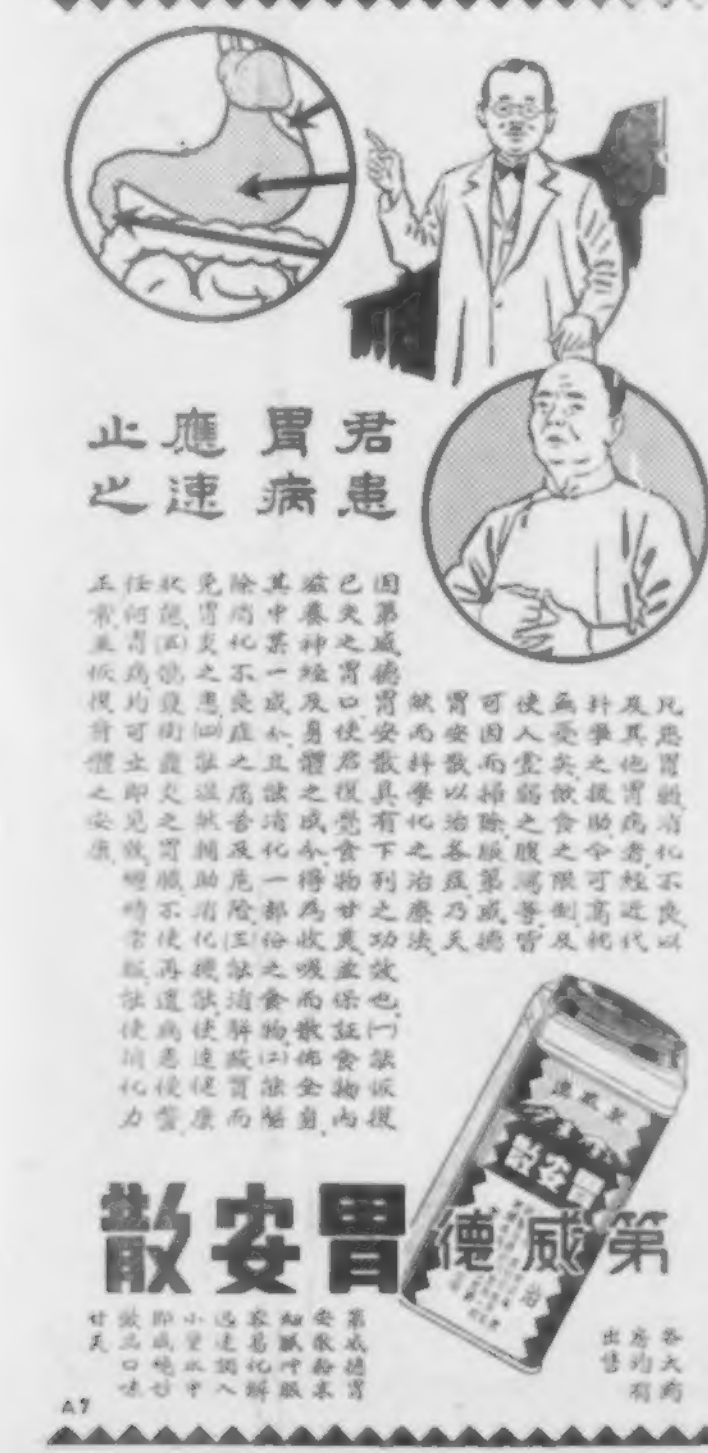 君患
胃病
應速
止之
凡患胃弱消化不良以
及其他胃病者經近代
科學之援助今可高枕
無憂矣飲食之限制及
使人虛弱之腹瀉等皆
可因而掃除服第威德
胃安散以治各症乃天
然而科學化之治療法
因第威德胃安散具有下列之功效也(一)能恢復
已失之胃口使君復覺食物甘美並保証食物內
滋養神經及身體之成分得為收吸而散佈全身
其中某一成分且能消化一部份之食物(二)能解
除消化不良症之痛苦及危險(三)能消解酸質而
免胃炎之患(四)能溫然輔助消化機能使達健康
狀態(五)能發衛護炎之胃臟不使再遭病患侵襲
任何胃病均可立即見效 時常服能使消化力
正常並恢復身體之安康
第威德
胃安散
第威德
胃安散
治
第威德胃
安散粉末
細膩吞服
容易化解
迅速調入
小量水中
即成絕妙
飲品口味
甘美
各大葯
房均有
出售
A7